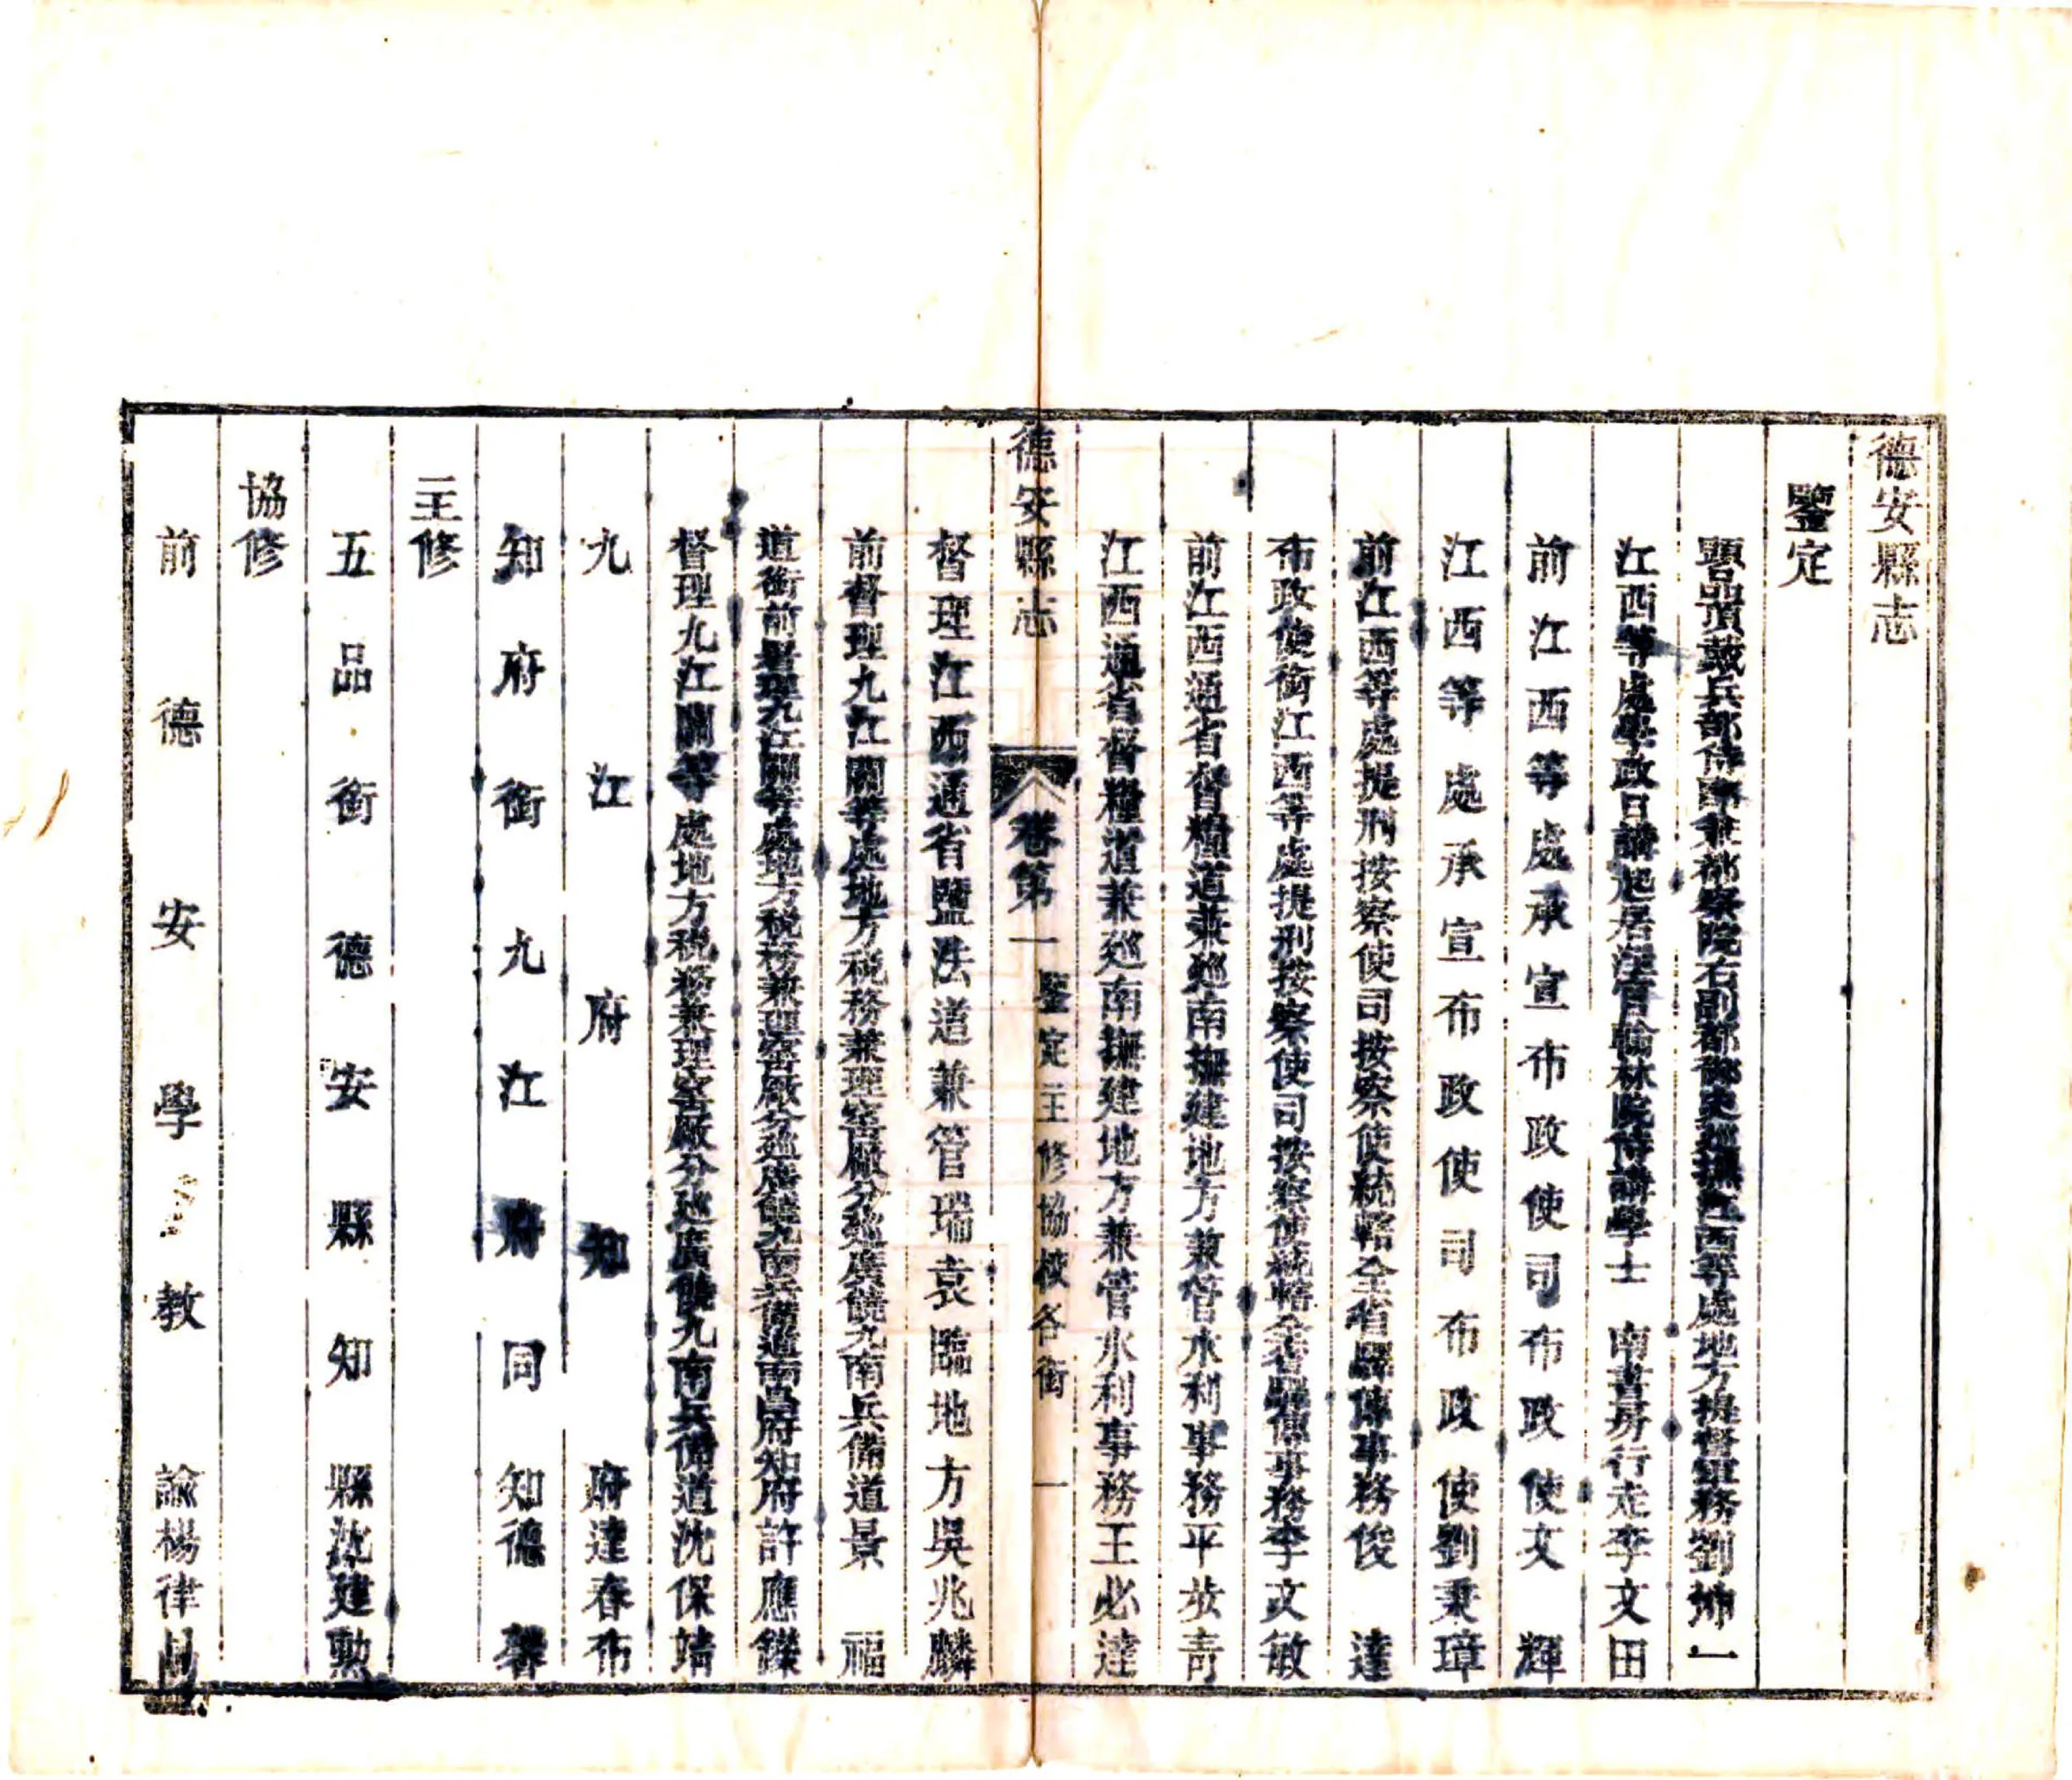 德安縣志
鑒定
頭品頂戴兵部侍郎兼都察院右副都御史巡撫江西等處地方提督軍務劉坤一
江西等處學政日講起居注官翰林院侍講學士 南書房行走李文田
前江西等處承宣布政使司布政使文 輝
江西等處承宣布政使司布政使劉秉璋
前江西等處提刑按察使司按察使統轄全省驛傳事務俊 達
布政使銜江西等處提刑按察使司按察使統轄全省驛傳事務李文敏
前江西通省督糧道兼巡南撫建地方兼管水利事務平步青
江西通省督糧道兼巡南撫建地方兼管水利事務王必達
德安縣志 卷第一 鑒定主修協修各銜 一
督理江西通省鹽法道兼管瑞袁臨地方吳兆麟
前督理九江關等處地方稅務兼理窑廠分巡廣饒九南兵備道景 福
道銜前督理九江關等處地方稅務兼理窑廠分巡廣饒九南兵備道南昌府知府許應鑅
督理九江關等處地方稅務兼理窑廠分巡廣饒九南兵備道沈保靖
九江府知府達春布
知府銜九江府同知德 馨
主修
五品銜德安縣知縣沈建勳
協修
前德安學教諭楊律